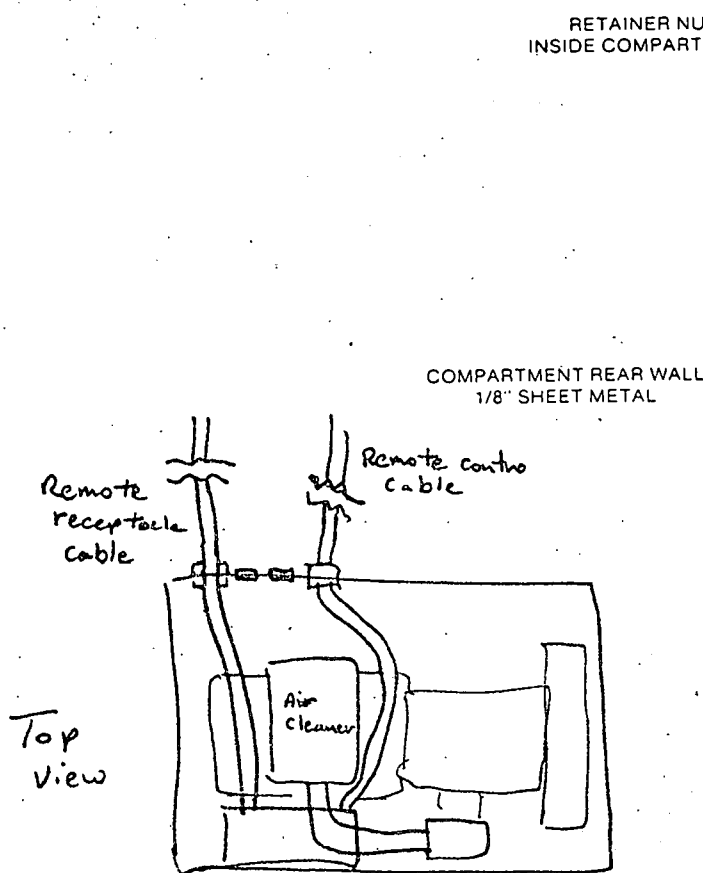 RETAINER NU
INSIDE COMPART
COMPARTMENT REAR WALL
1/8" SHEET METAL
Remote
receptacle
cable
Remote contro
cable
Air
Cleaner
Top
View